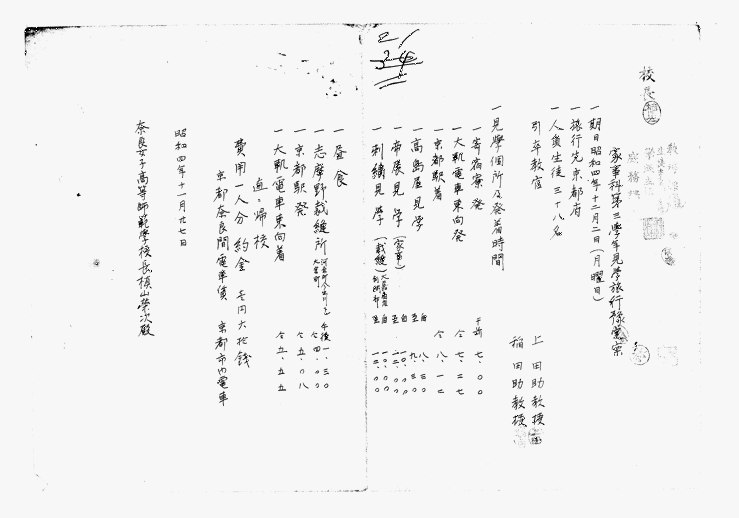 校長
家事科第三學年見学旅行豫定案
一 期日 昭和四年十二月二日(月曜日)
一 旅行先 京都府
一 人員 生徒 三十八名
引率教官
上田助教授
稲田助教授
一 見學個所及發着時間
一 寄宿寮発 午前 七、〇〇
一 大軌電車東向発 仝 七、二七
一 京都駅着 仝 八、一二
一 髙島屋見学 自 八、三〇 至 九、三〇
一 帝展見学(家事) 自 一〇、〇〇 至 一二、〇〇
一 刺繡見學(裁縫) 自 一〇、〇〇 至 一二、〇〇
一 昼食
一 志摩野裁縫所 午後 一、三〇 仝 四、〇〇
一 京都駅発 仝 五、〇八
一 大軌電車東向着 仝 五、五五
帰校
費用一人分約金 壱円六拾錢
京都奈良間電車賃 京都市内電車
昭和四年十一月廿七日
奈良女子高等師範學校長槙山榮次殿